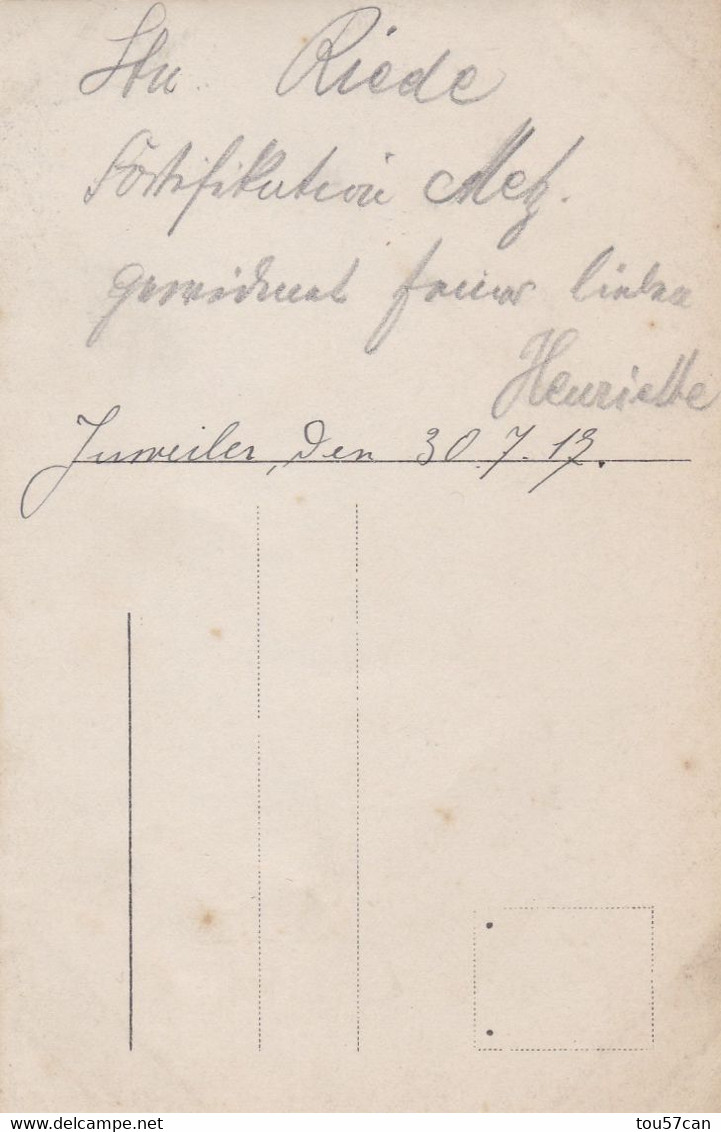 Riede
Fortifikation Metz.
gewidmet seiner lieben
Henriette
Juweiler, den 30.7.19.
www.delcampe.net
tou57can